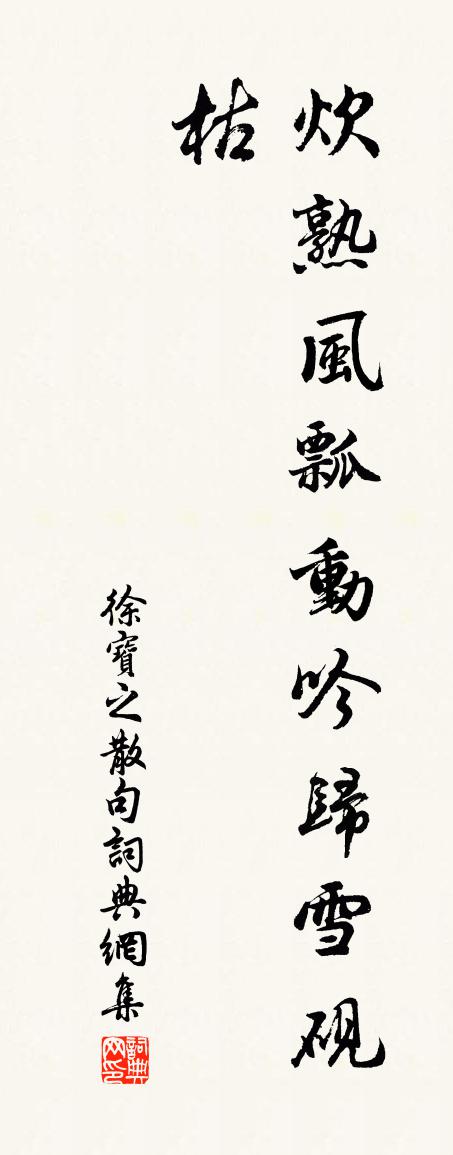 炊熟風瓢動吟歸雪硯
枯
徐寶之散句詞典網集
詞典网印